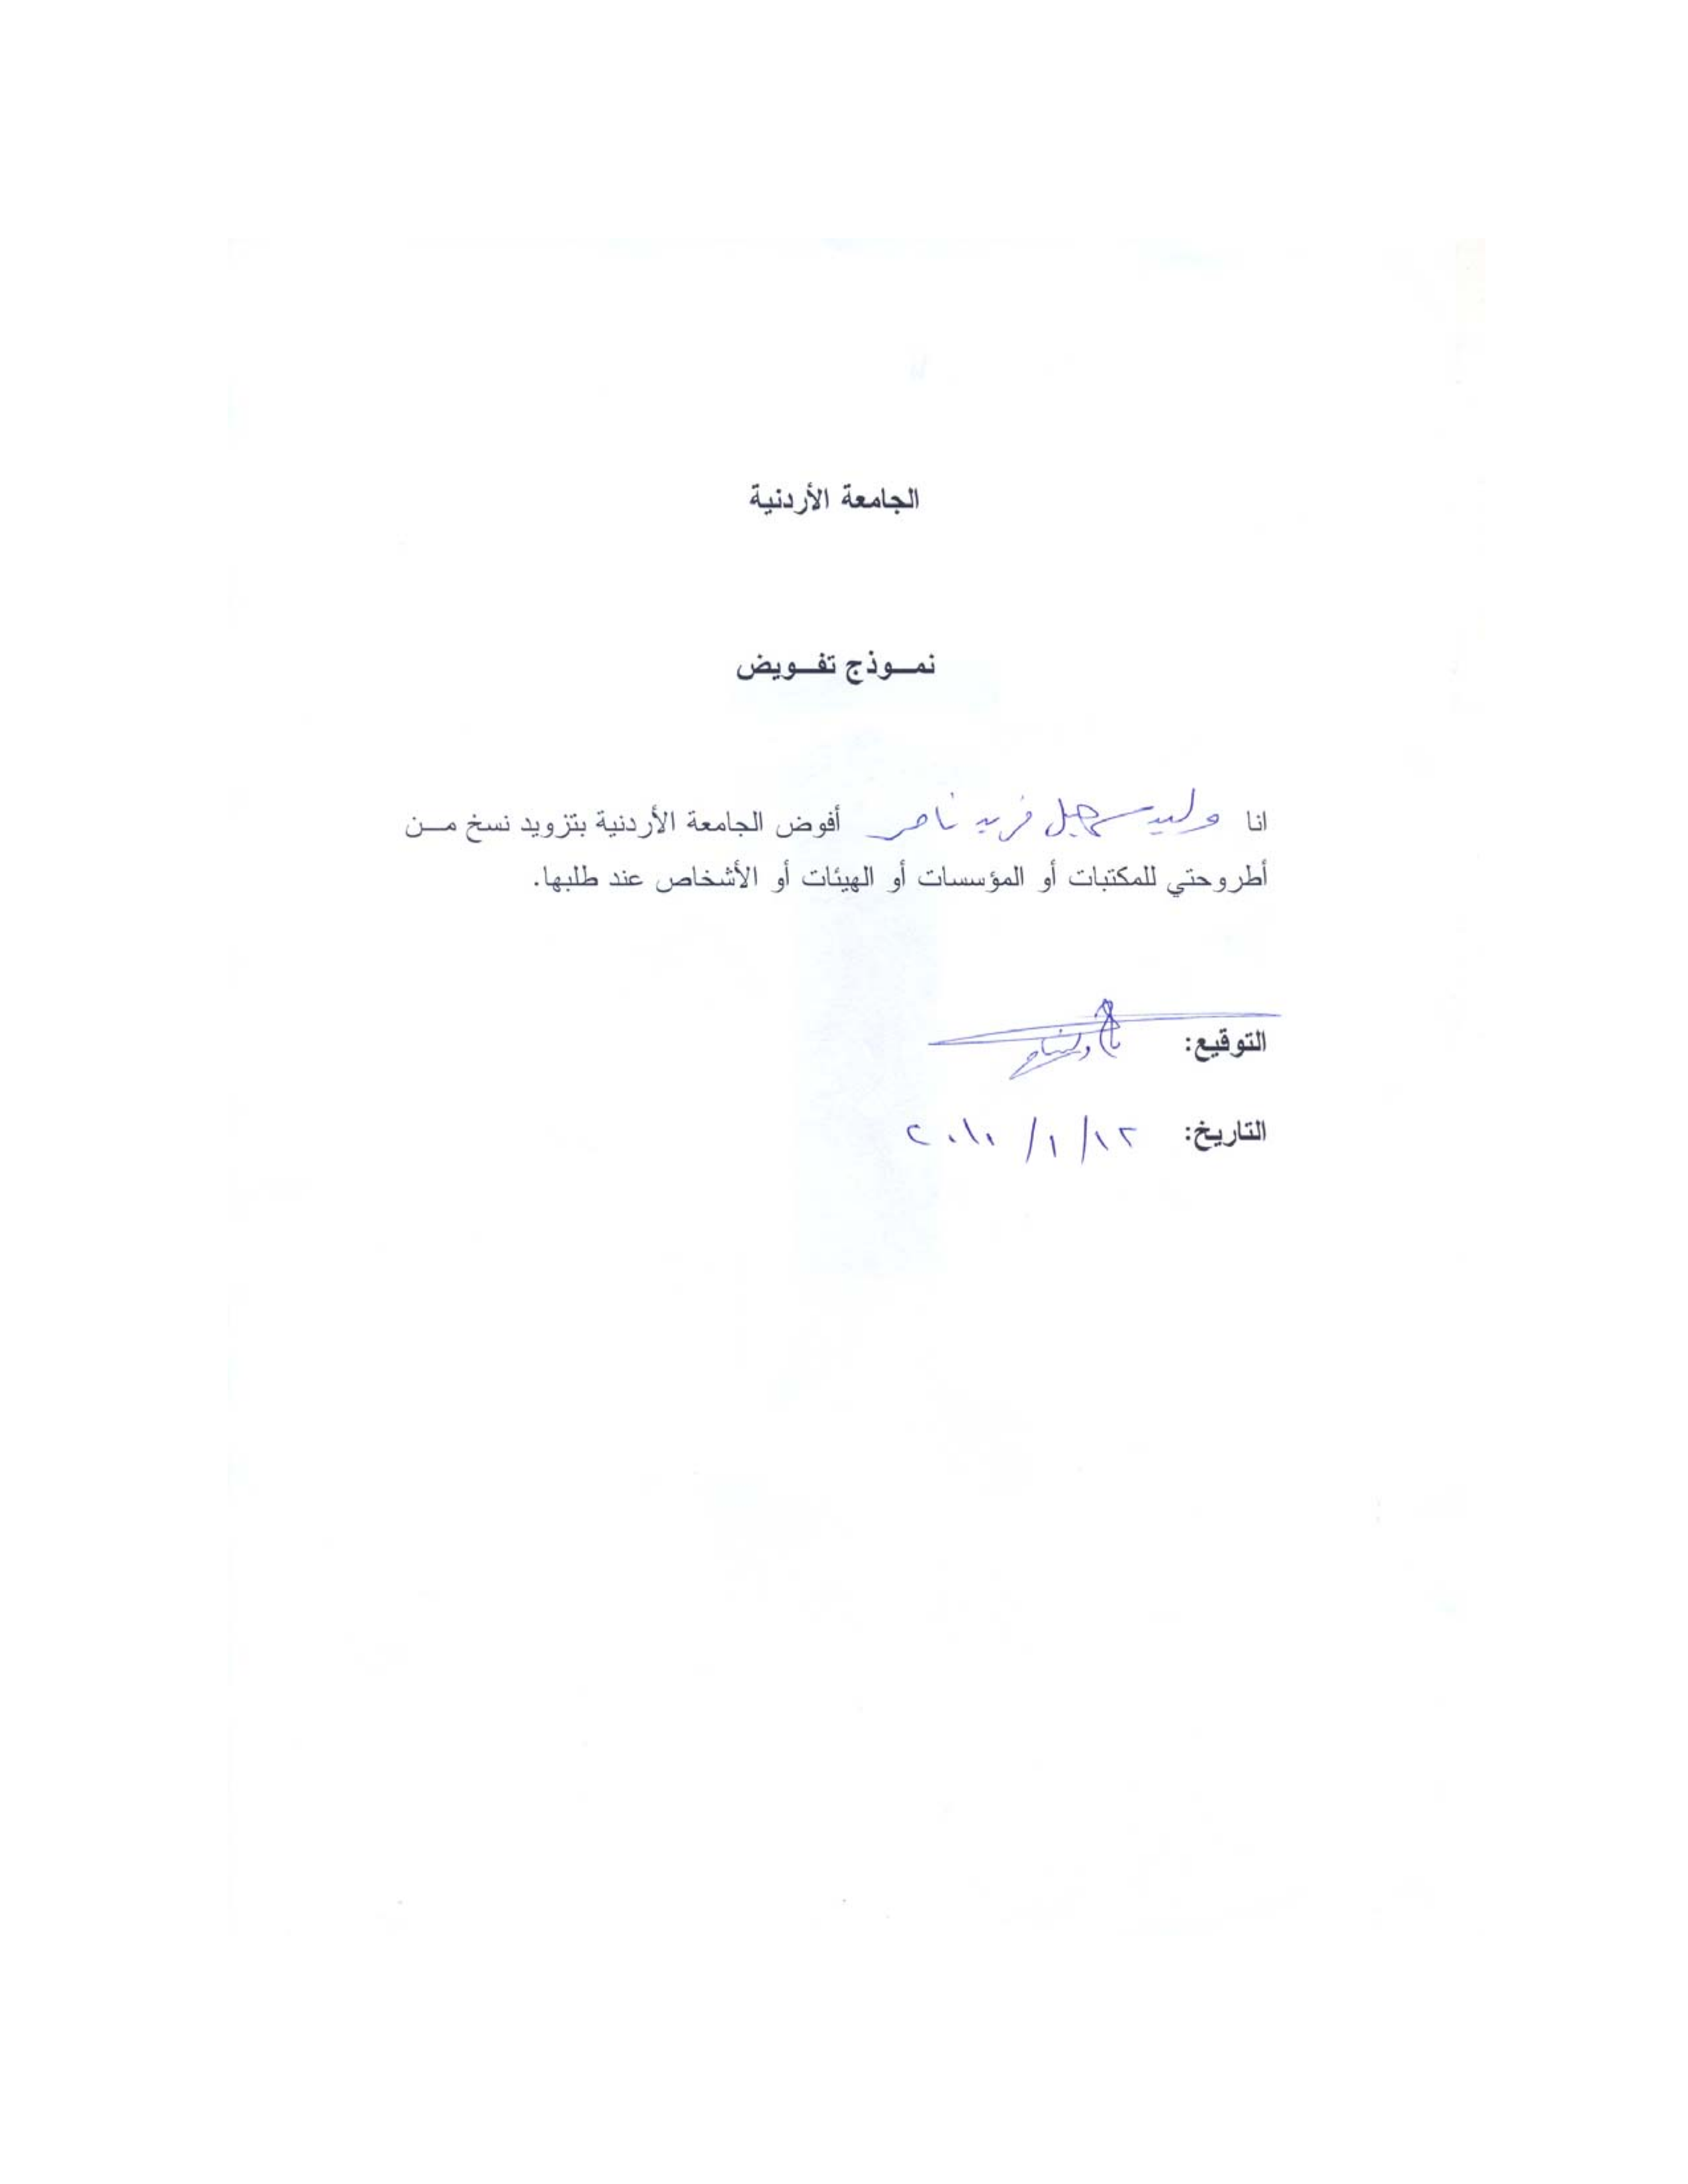 الجامعة الأردنية
نمـوذج تفـويض
انا وليد سهيل فريد ناصر أفوض الجامعة الأردنية بتزويد نسخ مـن
أطروحتي للمكتبات أو المؤسسات أو الهيئات أو الأشخاص عند طلبها.
التوقيع:
التاريخ: ١٢/ ١/ ٢٠١٠